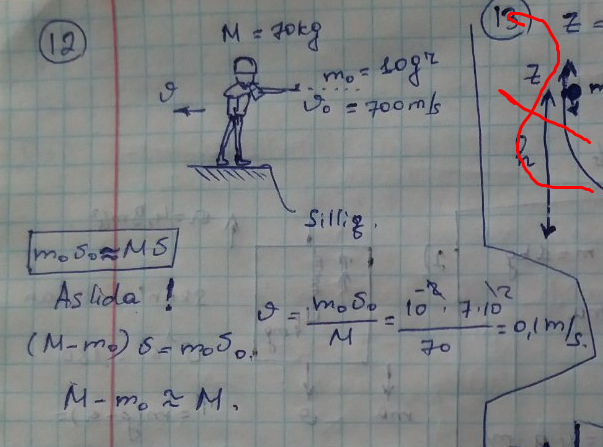 12
M = 70kg
m₀ = 10gr
ϑ
ϑ₀ = 700m/s
Silliq.
m₀ϑ₀ ≈ Mϑ
Aslida !
(M-m₀) ϑ = m₀ϑ₀.
M - m₀ ≈ M.
ϑ = m₀ϑ₀/M = 10⁻² · 7·10²/70 = 0,1m/s.
13
Z =
Z
m
h